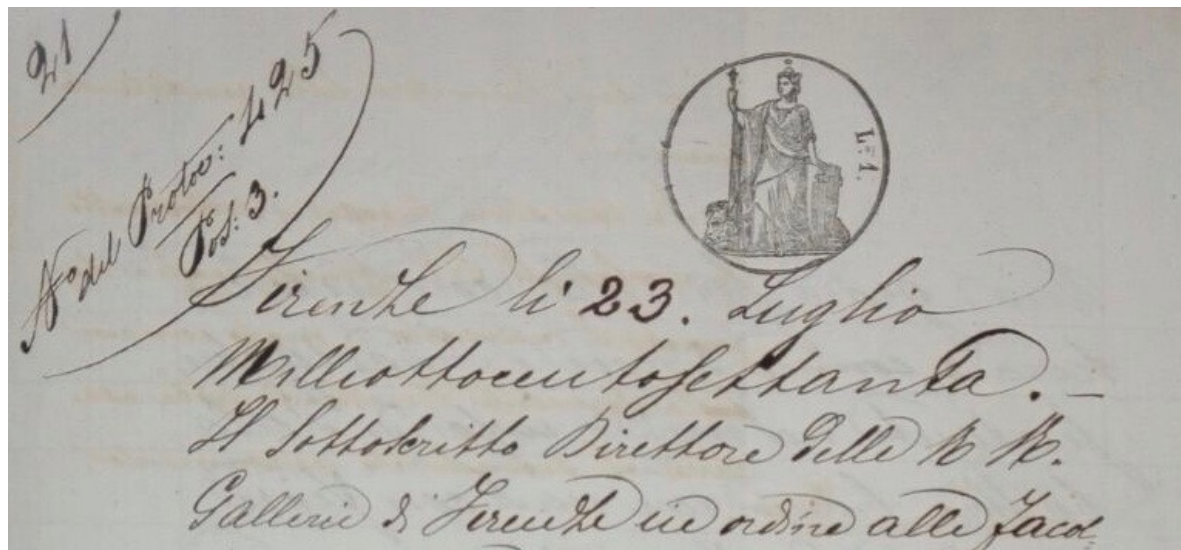 21
N.o del Protoc: 425
Pos: 3.
L.e 1.
Firenze li 23. Luglio
Milleottocentosettanta. —
Il Sottoscritto Direttore delle R R.
Gallerie di Firenze in ordine alle Facol-